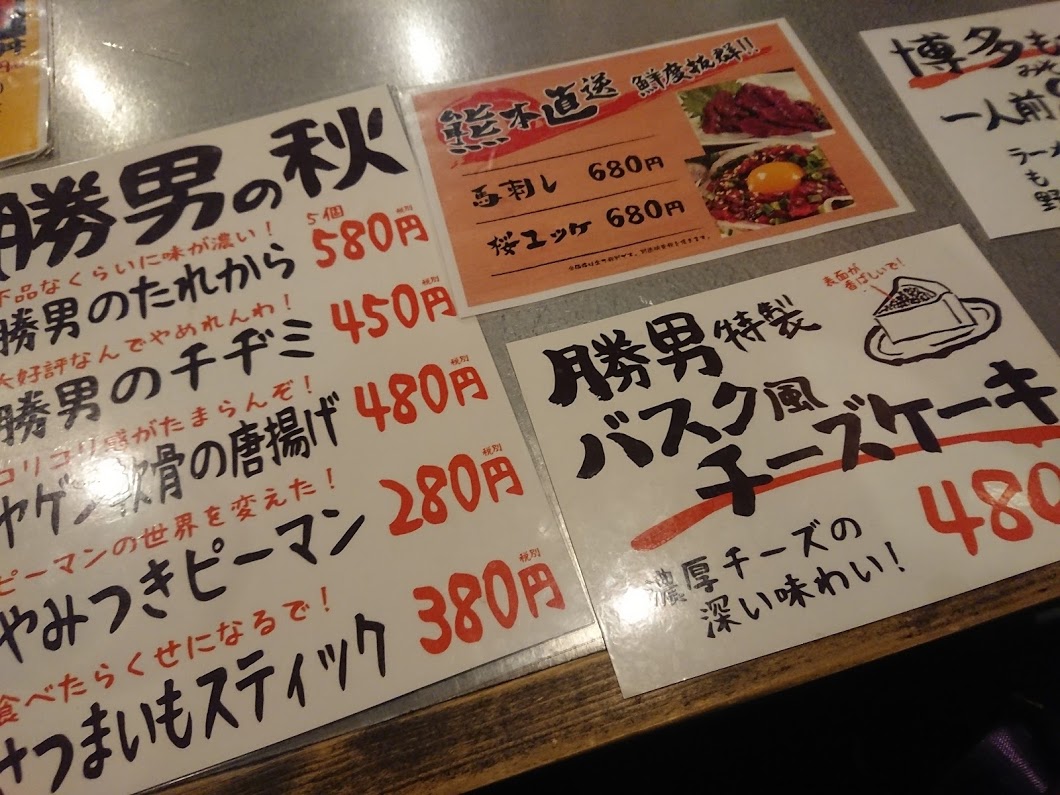 勝男の秋
下品なくらいに味が濃い!
勝男のたれから
5個
580円
税別
大好評なんでやめれんわ!
勝男のチヂミ
450円
税別
コリコリ感がたまらんぞ!
ヤゲン軟骨の唐揚げ
480円
税別
ピーマンの世界を変えた!
やみつきピーマン
280円
税別
食べたらくせになるで!
さつまいもスティック
380円
税別
熊本直送 鮮度抜群!!
馬刺し 680円
桜ユッケ 680円
勝男特製
バスク風
チーズケーキ
表面が
香ばしいで!
480
濃厚チーズの
深い味わい!
博多も
みそ
一人前
ラーメ
も
野